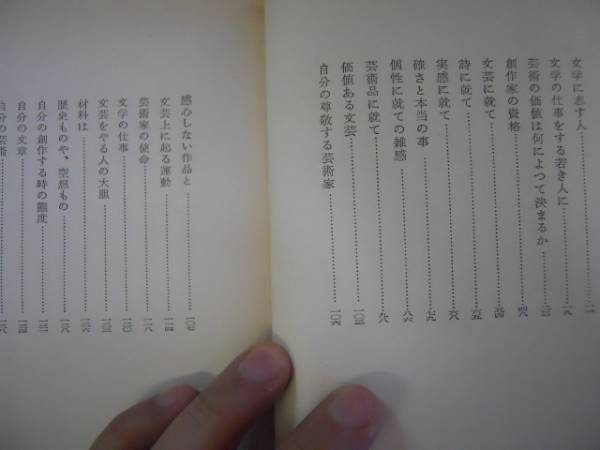 文学に志す人
文学の仕事をする若き人に……一九
芸術の価値は何によつて決まるか
創作家の資格
文芸に就て
詩に就て……六五
実感に就て……六八
確さと本当の事……七九
個性に就ての雑感……八六
芸術品に就て……九八
価値ある文芸
自分の尊敬する芸術家……一〇六
感心しない作品と
文芸上に起る運動
芸術家の使命……一一八
文学の仕事
文芸をやる人の大胆
材料は
歴史ものや、空想もの
自分の創作する時の態度
自分の文章
自分の芸術